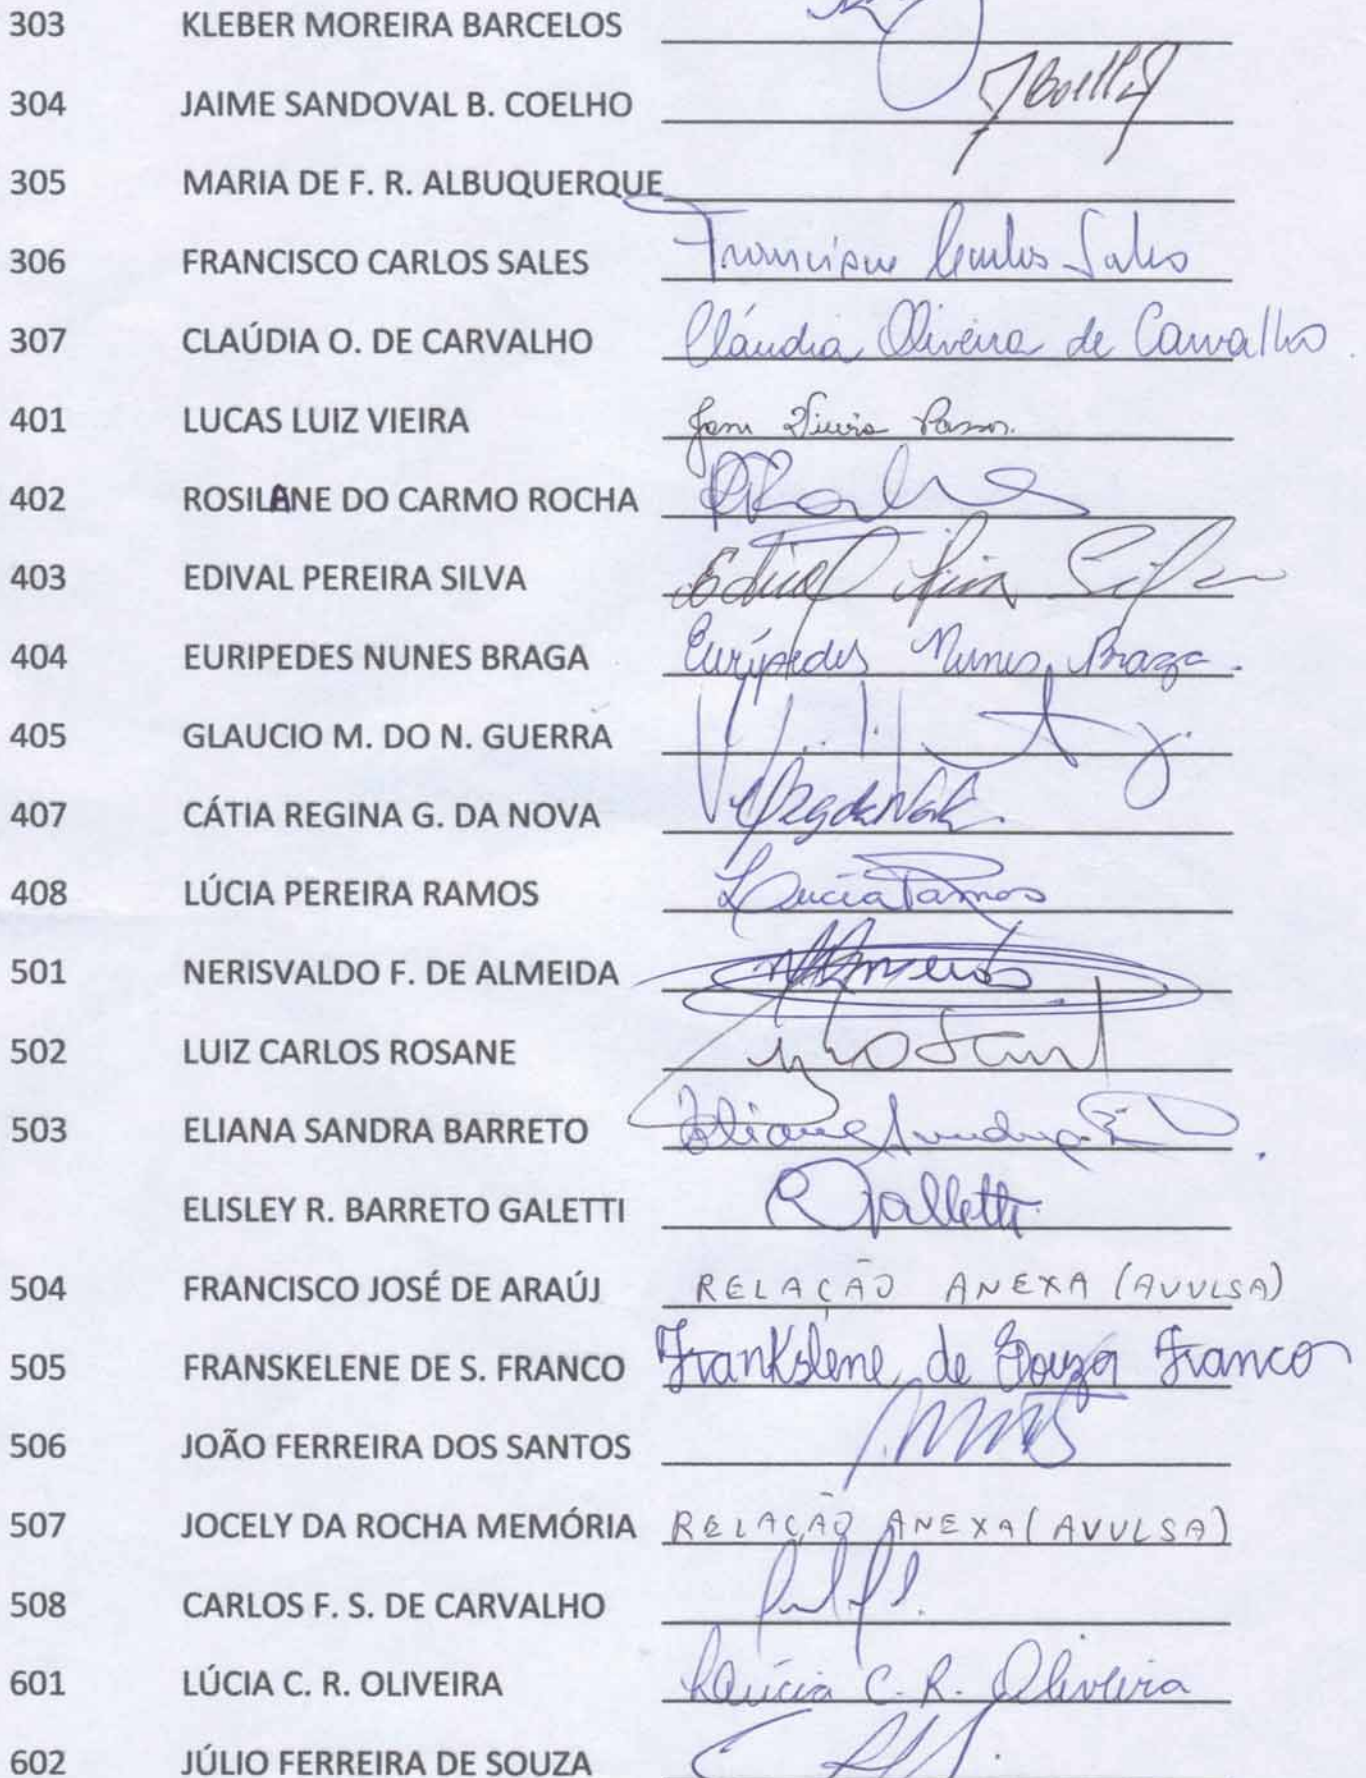 303 KLEBER MOREIRA BARCELOS
304 JAIME SANDOVAL B. COELHO
305 MARIA DE F. R. ALBUQUERQUE
306 FRANCISCO CARLOS SALES Francisco Carlos Sales
307 CLAÚDIA O. DE CARVALHO Cláudia Oliveira de Carvalho
401 LUCAS LUIZ VIEIRA
402 ROSILANE DO CARMO ROCHA
403 EDIVAL PEREIRA SILVA Edival Silva
404 EURIPEDES NUNES BRAGA Eurípedes Nunes Braga.
405 GLAUCIO M. DO N. GUERRA
407 CÁTIA REGINA G. DA NOVA
408 LÚCIA PEREIRA RAMOS Lucia Ramos
501 NERISVALDO F. DE ALMEIDA
502 LUIZ CARLOS ROSANE
503 ELIANA SANDRA BARRETO
ELISLEY R. BARRETO GALETTI Galletti
504 FRANCISCO JOSÉ DE ARAÚJ RELAÇÃO ANEXA (AVULSA)
505 FRANSKELENE DE S. FRANCO Frankslene de Souza Franco
506 JOÃO FERREIRA DOS SANTOS
507 JOCELY DA ROCHA MEMÓRIA RELAÇÃO ANEXA (AVULSA)
508 CARLOS F. S. DE CARVALHO
601 LÚCIA C. R. OLIVEIRA Lúcia C. R. Oliveira
602 JÚLIO FERREIRA DE SOUZA